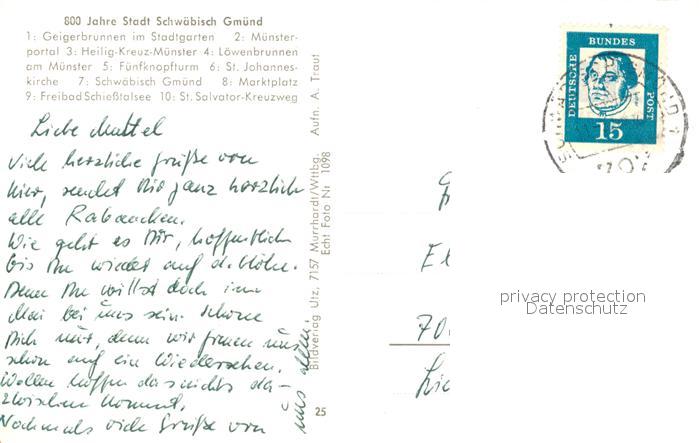 800 Jahre Stadt Schwäbisch Gmünd
1: Geigerbrunnen im Stadtgarten 2: Münster-
portal 3: Heilig-Kreuz-Münster 4: Löwenbrunnen
am Münster 5: Fünfknopfturm 6: St. Johannes-
kirche 7: Schwäbisch Gmünd 8: Marktplatz
9: Freibad Schießtalsee 10: St. Salvator-Kreuzweg
Liebe Muttel
Viele herzliche Grüße von
hier, sendet Dir ganz herzlich
alle
Wie geht es Dir, hoffentlich
bis Du wieder auf d. Höhe.
Denn Du willst doch im
Mai bei uns sein. Schone
Dich nur, denn wir freuen uns
schon auf ein Wiedersehen.
Wollen hoffen das nichts da-
zwischen kommt.
Nochmals viele Grüße von
uns allen.
Bildverlag Utz, 7157 Murrhardt/Wttbg. Aufn. A. Traut
Echt Foto Nr 1098
25
DEUTSCHE
BUNDES
POST
15
70
privacy protection
Datenschutz